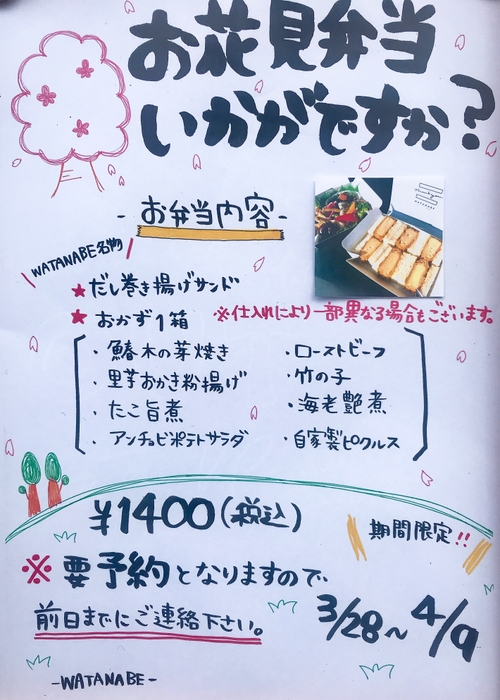 お花見弁当
いかがですか?
- お弁当内容 -
WATANABE名物
★だし巻き揚げサンド
★おかず1箱 ※仕入れにより一部異なる場合もございます。
・鰆木の芽焼き
・里芋おかき粉揚げ
・たこ旨煮
・アンチョビポテトサラダ
・ローストビーフ
・竹の子
・海老艶煮
・自家製ピクルス
¥1400(税込)
期間限定!!
※要予約となりますので
前日までにご連絡下さい。
3/28~4/9
-WATANABE-